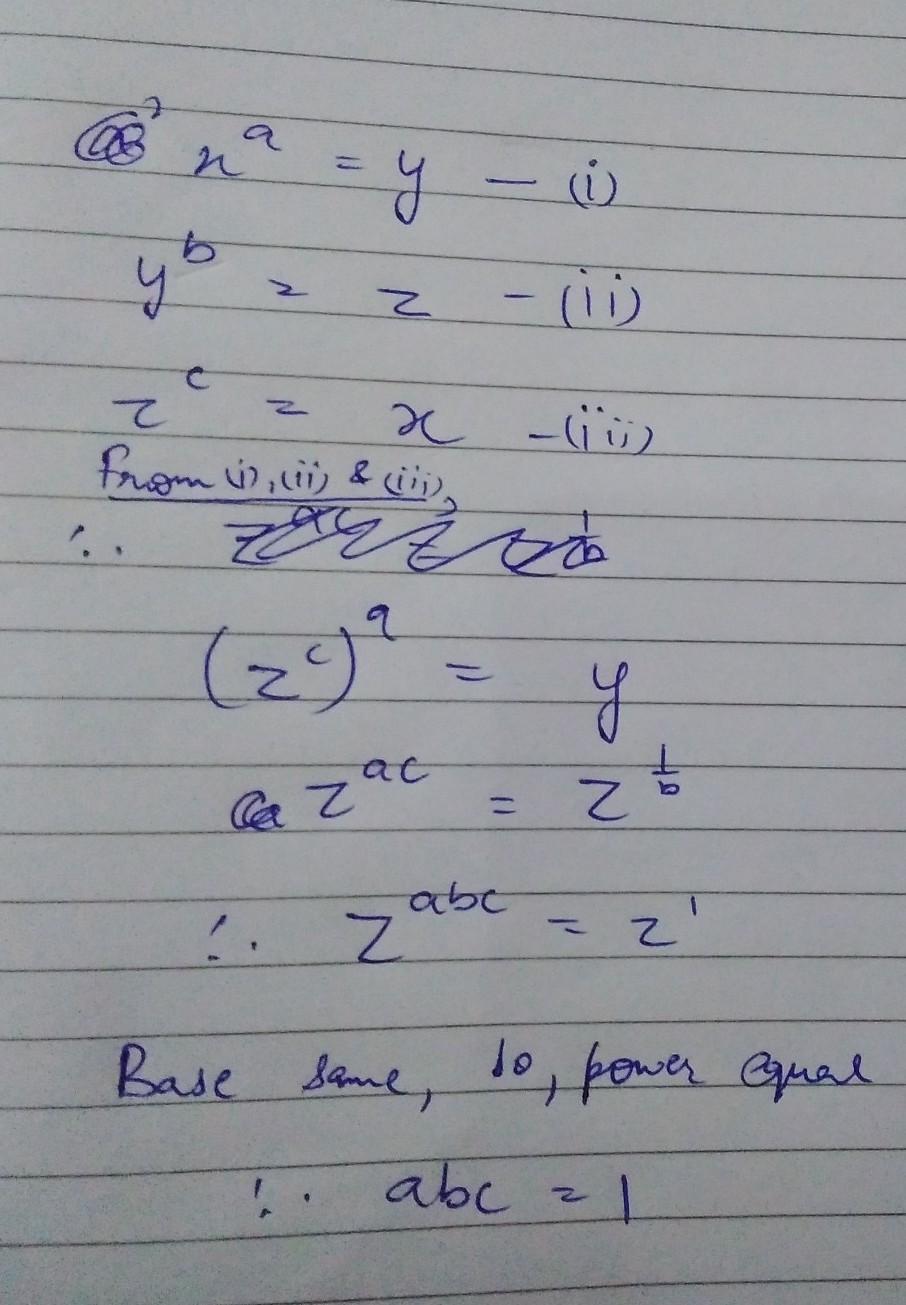 x^a = y - (i)
y^b = z - (ii)
z^c = x - (iii)
From (i), (ii) & (iii),
∴
(z^c)^a = y
z^{ac} = z^{1/b}
∴ z^{abc} = z^1
Base same, so, power equal
∴ abc = 1